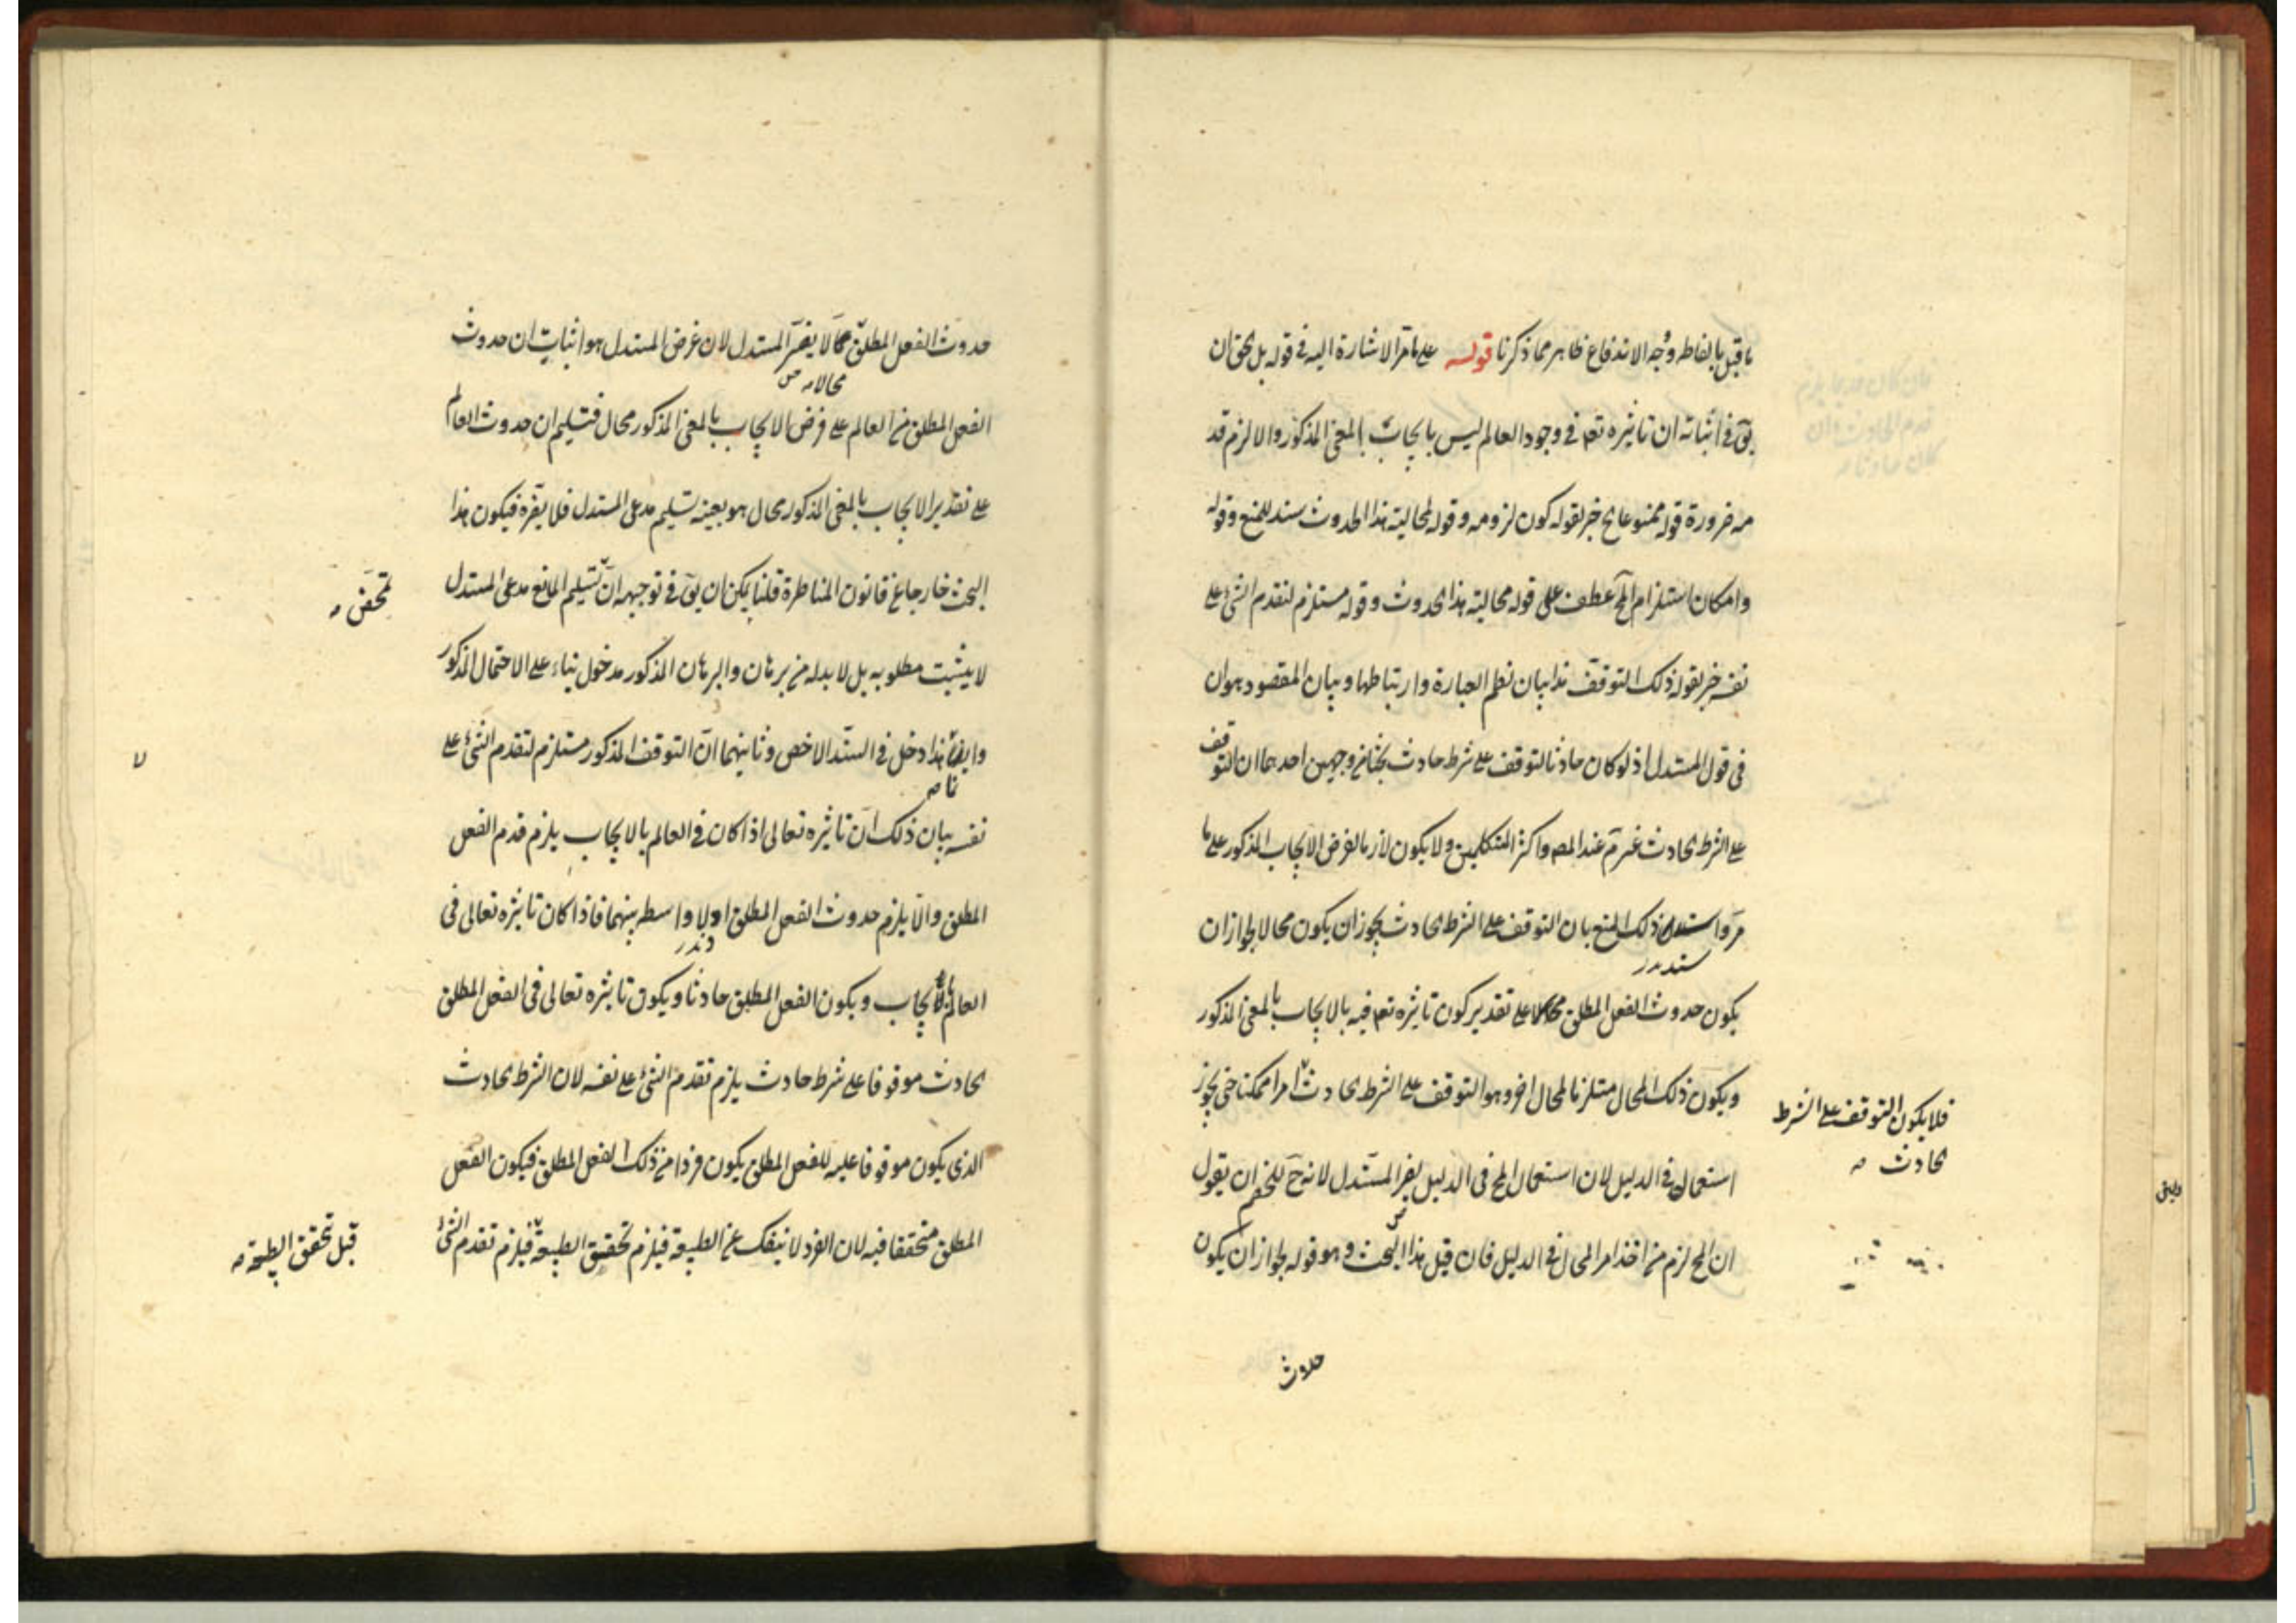 ما قيل بالفاظه وجه الاندفاع ظاهر مما ذكرنا قوله على ما مر الاشارة اليه فى قوله بل الحق ان
يق فى اثباته ان تاثيره تعه فى وجود العالم ليس بايجاب بالمعنى المذكور والا لزم قد
مه ضرورة قوله ممنوعا الخ خبر لقوله كون لزومه وقوله لمحالية هذا الحدوث سند للمنع وقوله
وامكان استلزام الخ عطف على قوله محالية هذا الحدوث وقوله مستلزم لتقدم الشئ على
نفسه خبر لقوله ذلك التوقف هذا بيان نظم العبارة وارتباطها وبيان المقصود هو ان
فى قول المستدل اذ لو كان حادثا لتوقف على شرط حادث بحثا من وجهين احدهما ان التوقف
على الشرط الحادث غير تم عند المصه واكثر المتكلمين ولا يكون لازما لفرض الايجاب المذكور على ما
مر واستدل ذلك المنع بان التوقف على الشرط الحادث يجوز ان يكون محالا لجواز ان
سند
يكون حدوث الفعل المطلق محالا على تقدير كون تاثيره تعه فيه بالايجاب بالمعنى المذكور
ويكون ذلك المحال مستلزما لمحال اخر وهو التوقف على الشرط الحادث امرا ممكنا حتى يجوز
فلا يكون التوقف على الشرط
الحادث صه
استعماله فى الدليل لان استعمال المح فى الدليل يضر المستدل لانه ح للخصم ان يقول
ان المح لزم من اخذ امر المحال فى الدليل فان قيل هذا البحث وهو قوله لجواز ان يكون
حدوث
حدوث الفعل المطلق محالا لا يضر المستدل لان غرض المستدل هو اثبات ان حدوث
محالا صه
الفعل المطلق من العالم على فرض الايجاب بالمعنى المذكور محال فتسليم ان حدوث العالم
على تقدير الايجاب بالمعنى المذكور محال هو بعينه تسليم مدعى المستدل فلا يضره فيكون هذا
البحث خارجا عن قانون المناظرة قلنا يمكن ان يق فى توجيهه ان تسليم المانع مدعى المستدل
تمحض صه
لا يثبت مطلوبه بل لا بد له من برهان والبرهان المذكور مدخول بناء على الاحتمال المذكور
وايضا هذا دخل فى السند الاخص وثانيهما ان التوقف المذكور مستلزم لتقدم الشئ على
نفسه بيان ذلك ان تاثيره تعالى اذا كان فى العالم بالايجاب يلزم قدم الفعل
المطلق والا يلزم حدوث الفعل المطلق اولا واسطه بينهما فاذا كان تاثيره تعالى فى
العالم بالايجاب ويكون الفعل المطلق حادثا ويكون تاثيره تعالى فى الفعل المطلق
الحادث موقوفا على شرط حادث يلزم تقدم الشئ على نفسه لان الشرط الحادث
الذى يكون موقوفا عليه للفعل المطلق يكون فردا من ذلك الفعل المطلق فيكون الفعل
المطلق متحققا فيه لان الفرد لا ينفك عن الطبيعة فيلزم تحقق الطبيعة فيلزم تقدم الشئ
قبل تحقق الطبيعة صه